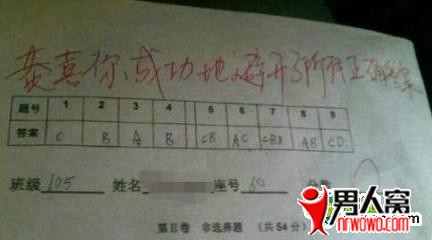 恭喜你,成功地避开了所有正确答案
题号 1 2 3 4 5 6 7 8 9
答案 C B A B CB AC CBD AB CD
班级 105 姓名 座号 分数
第Ⅱ卷 非选择题 (共54分)
男人窝
nrwowo.com